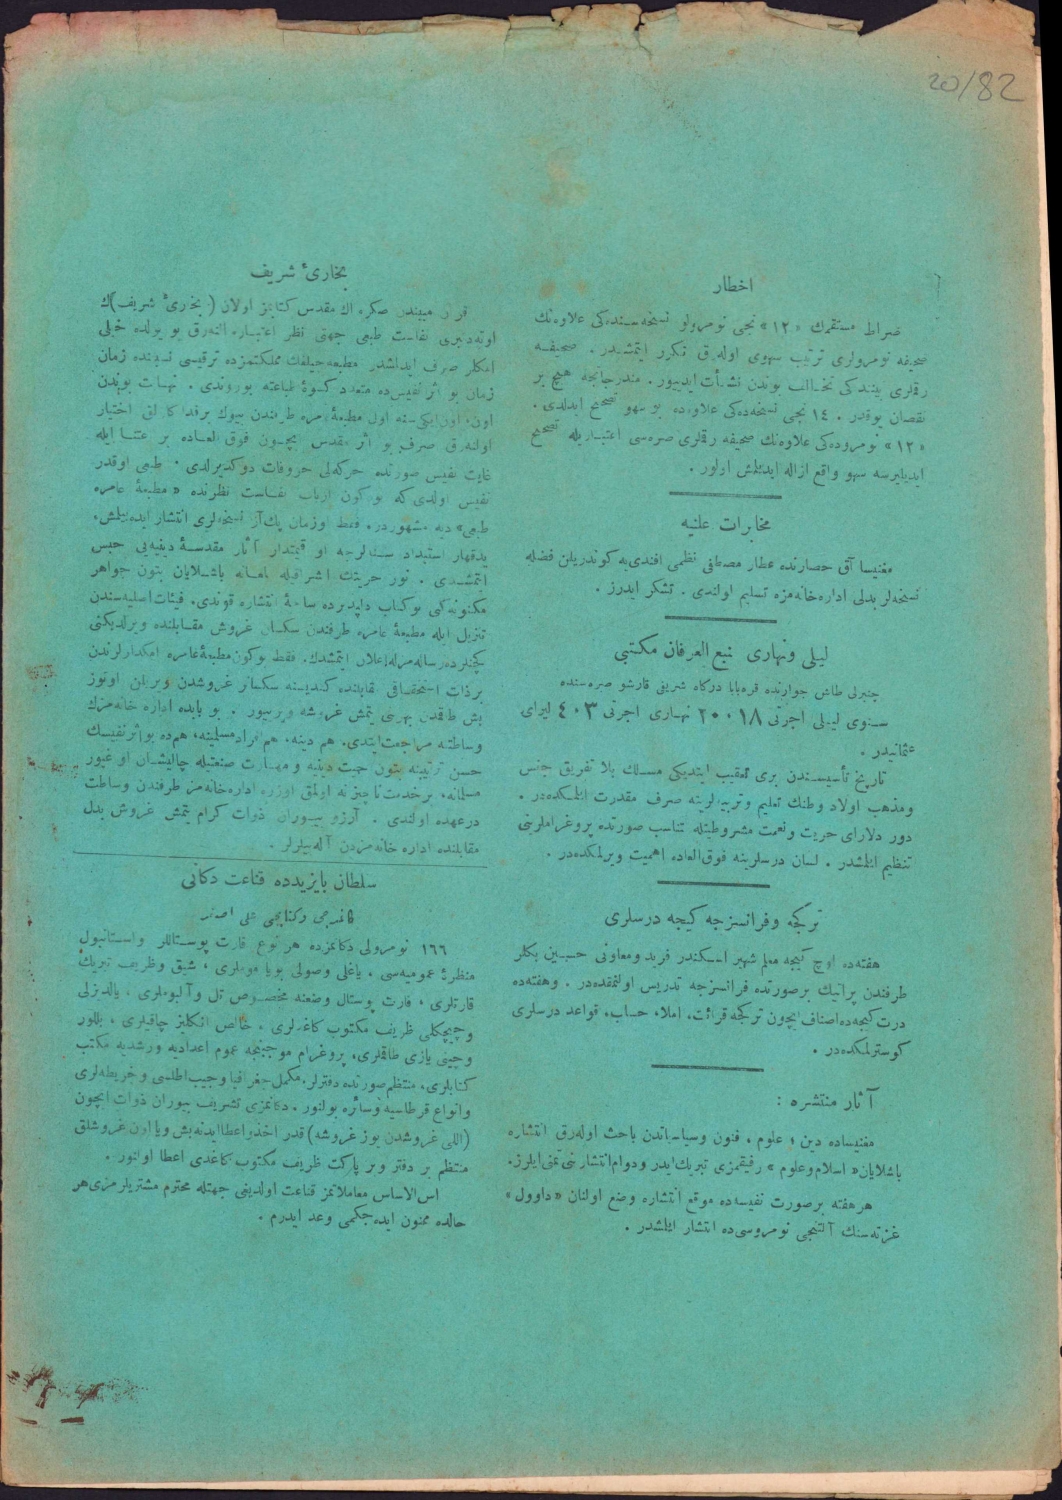 20/82
اخطار
صراط مستقيمك «١٢» نجى نومرولو نسخه‌سنده‌كى علاوه‌نك
صحيفه نومرولرى ترتيب سهوى اوله‌رق تكرر ايتمشدر . صحيفه
رقملرى بيننده‌كى تخالف بوندن نشأت ايدييور . مندرجاتجه هيچ بر
نقصان يوقدر . ١٤ نجى نسخه‌ده‌كى علاوه‌ده بو سهو تصحيح ايدلدى .
«١٢» نومروده‌كى علاوه‌نك صحيفه رقملرى صره‌سى اعتباريله تصحيح
ايديليرسه سهو واقع ازاله ايدلمش اولور .
مخابرات علنيه
مغنيسا آق حصارنده عطار مصطفى نظمى افندى‌يه كوندريلن فضله
نسخه‌لر بدلى اداره‌خانه‌مزه تسليم اولندى . تشكر ايدرز .
ليلى ونهارى نبع العرفان مكتبى
جنبرلى طاش جوارنده قره‌بابا دركاه شريفى قارشو صره‌سنده
سنوى ليلى اجرتى ١٨،٢٠ نهارى اجرتى ٣،٤ ليراى
عثمانيدر .
تاريخ تأسيسندن برى تعقيب ايتديكى مسلك بلا تفريق جنس
ومذهب اولاد وطنك تعليم وتربيه‌لرينه صرف مقدرت ايلمكده‌در .
دور دلاراى حريت ونعمت مشروطيتله تناسب صورتده پروغراملرينى
تنظيم ايلمشدر . لسان درسلرينه فوق‌العاده اهميت ويرلمكده‌در .
تركجه وفرانسزجه كيجه درسلرى
هفته‌ده اوچ كيجه معلم شهير اسكندر فريد ومعاونى حسين بكلر
طرفندن پراتيك برصورتده فرانسزجه تدريس اولنمقده‌در . وهفته‌ده
درت كيجه‌ده اصناف ايچون تركجه قرائت، املا، حساب، قواعد درسلرى
كوسترلمكده‌در .
آثار منتشره :
مغنيساده دين ، علوم ، فنون وسياسياتدن باحث اوله‌رق انتشاره
باشلايان «اسلام وعلوم » رفيقمزى تبريك ايدر ودوام انتشارنى تمنى ايلرز.
هر هفته برصورت نفيسه‌ده موقع انتشاره وضع اولنان «داوول»
غزته‌سنك آلتنجى نومروسى‌ده انتشار ايلمشدر .
بخارىٔ شريف
قرآن مبيندن صكره اك مقدس كتابمز اولان ( بخارىٔ شريف)ك
اوته‌دنبرى نفاست طبعى جهتى نظر اعتباره آلنه‌رق بو يولده خيلى
امكلر صرف ايدلمشدر مطبعه‌جيلغك مملكتمزده ترقيسى نسبتنده زمان
زمان بو اثر نفيس‌ده متعدد كسوهٔ طباعته بوروندى . نهايت بوندن
اون، اون‌ايكى سنه اول مطبعهٔ عامره طرفندن بيوك بر فداكارلق اختيار
اولنه‌رق صرف بو اثر مقدس ايچون فوق العاده بر اعتنا ايله
غايت نفيس صورتده حركه‌لى حروفات دوكديرلدى . طبعى اوقدر
نفيس اولدى كه بوكون ارباب نفاست نظرنده « مطبعهٔ عامره
طبعى» ديه مشهوردر. فقط اوزمان پك‌آز نسخه‌لرى انتشار ايده‌بيلمش،
يدقهار استبداد سنه‌لرجه او قيمتدار آثار مقدسهٔ دينيه‌يى حبس
ايتمشدى . نور حريتك اشراقيله لمعانه باشلايان بتون جواهر
مكنونه كبى بوكتاب دلپذيرده ساحهٔ انتشاره قوندى. فيئات اصليه‌سندن
تنزيل ايله مطبعهٔ عامره طرفندن سكسان غروش مقابلنده ويرلديكنى
كچنلرده رساله‌مزله اعلان ايتمشدك. فقط بوكون مطبعهٔ عامره امكدارلرندن
بر ذات استحقاقى مقابلنده كنديسنه سكسانر غروشدن ويريلن اوتوز
بش طاقمدن بهرينى يتمش غروشه ويرييور . بو بابده اداره خانه‌مزك
وساطتنه مراجعت ايتدى. هم دينه، هم افراد مسلمينه، هم‌ده بو اثر نفيسك
حسن ترتيبنه بتون حميت دينيه و مهارت صنعتيله چاليشان او غيور
مسلمانه، بر خدمت ناچيزانه اولمق اوزره اداره‌خانه‌مز طرفندن وساطت
درعهده اولندى . آرزو بيوران ذوات كرام يتمش غروش بدل
مقابلنده اداره خانه‌مزدن آله‌بيلرلر .
سلطان بايزيدده قناعت دكانى
كاغدجى وكتابجى على اصغر
١٦٦ نومرولى دكانمزده هر نوع قارت پوستاللر واستانبول
منظرهٔ عموميه‌سى ، ياغلى وصولى بويا موملرى ، شيق وظريف تبريك
قارتلرى ، قارت پوستال وضعنه مخصوص تل وآلبوملرى ، يالديزلى
وچيچكلى ظريف مكتوب كاغدلرى ، خالص انكليز چاقيلرى ، بللور
وچينى يازى طاقملرى، پروغرام موجبنجه عموم اعداديه ورشديه مكتب
كتابلرى، منتظم صورتده دفترلر، مكمل جغرافيا وجيب اطلسى وخريطه‌لرى
وانواع قرطاسيه وسائره بولنور . دكانمزى تشريف بيوران ذوات ايچون
(اللى غروشدن يوز غروشه) قدر اخذواعطا ايدنه بش ويا اون غروشلق
منتظم بر دفتر وبر پاكت ظريف مكتوب كاغدى اعطا اولنور .
اس‌الاساس معاملاتمز قناعت اولديغى جهتله محترم مشتريلرمزى هر
حالده ممنون ايده‌جكمى وعد ايدرم .